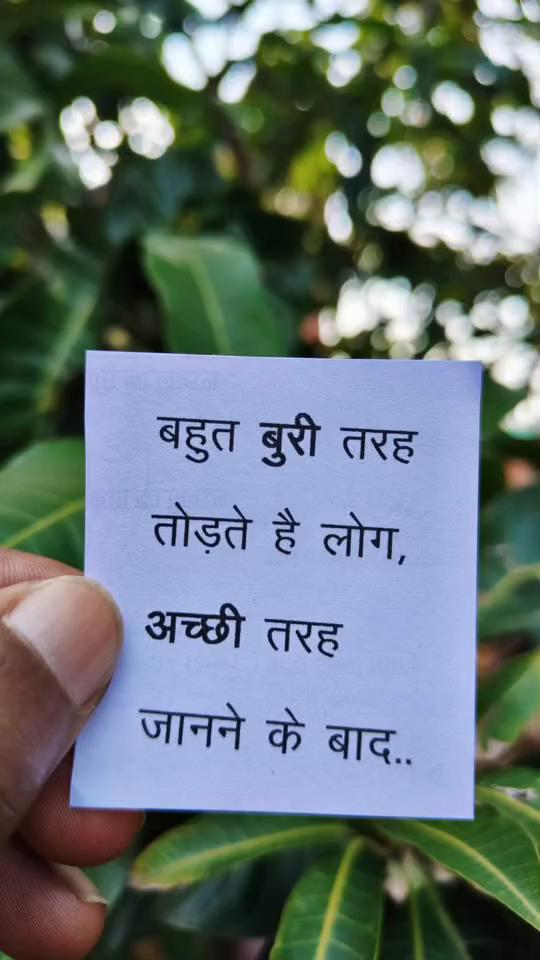 बहुत बुरी तरह
तोड़ते है लोग,
अच्छी तरह
जानने के बाद..